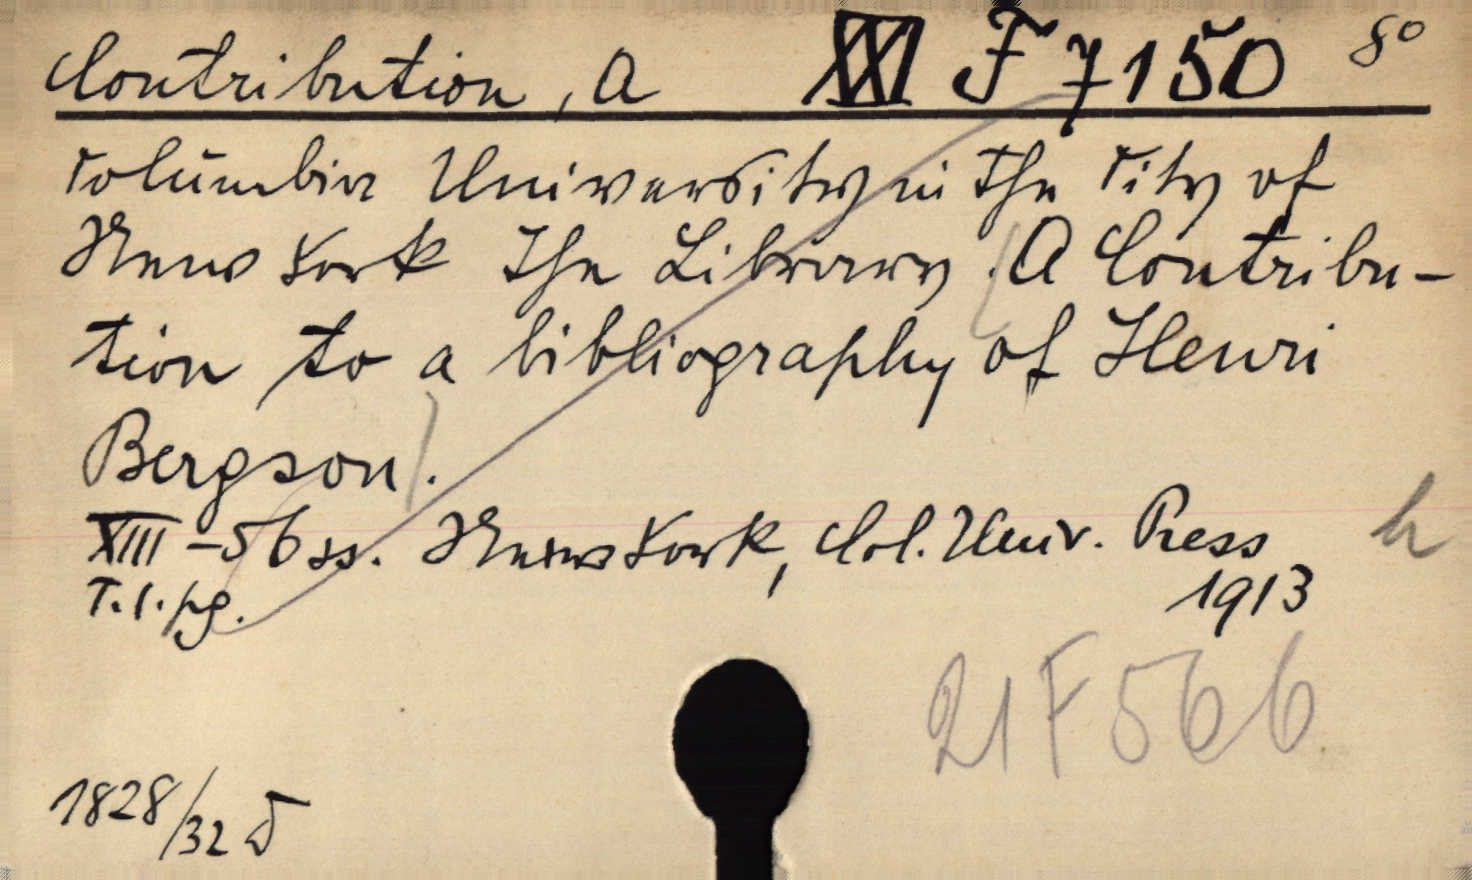 Contribution, A XXI F 7150 8°
Columbia University in the City of
New York The Library. A Contribu-
tion to a bibliography of Henri
Bergson.
XIII-56 ss. New York, Col. Univ. Press h
T.l.pg. 1913
21 F 566
1828/32 D